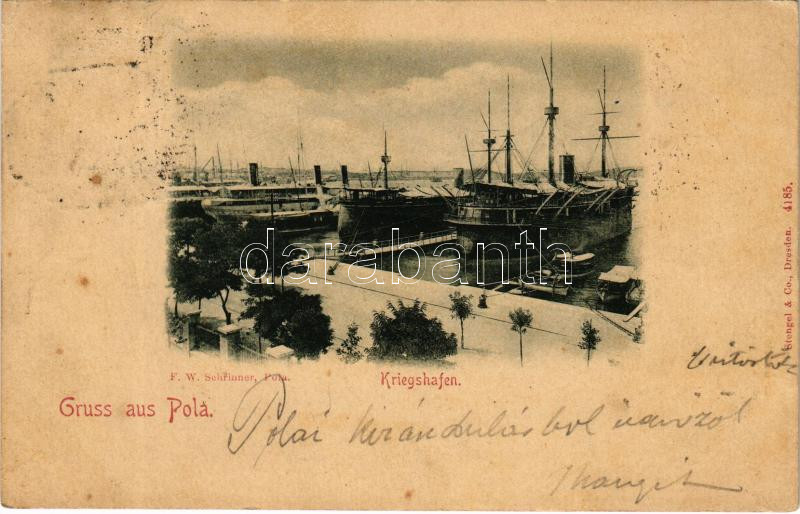 darabanth
F. W. Schrinner, Pola.
Kriegshafen.
Gruss aus Pola.
Stengel & Co., Dresden. 4185.
Polai kirándulásból üdvözöl
Margit